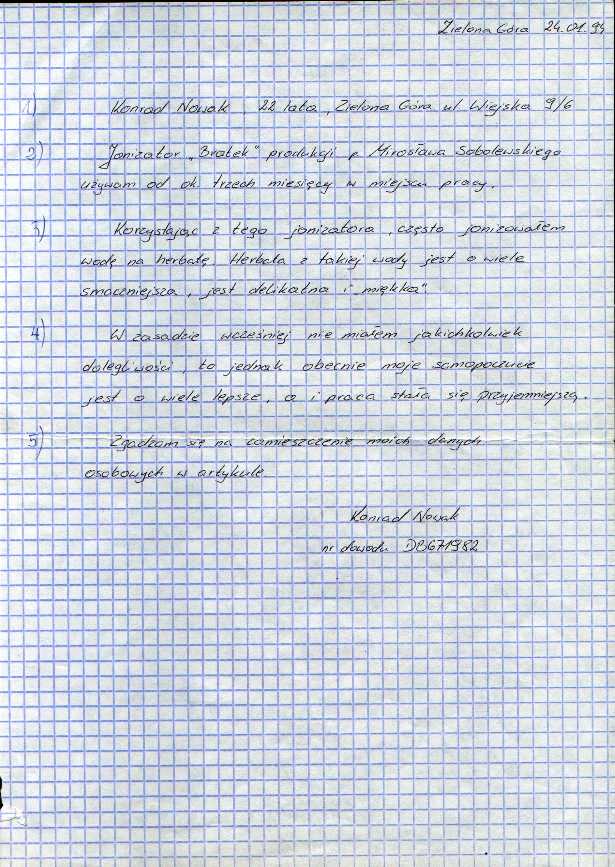 Zielona Góra 24.01.94
1) Konrad Nowak 22 lata, Zielona Góra ul. Wiejska 9/6
2) Jonizator „Bratek" produkcji p. Mirosława Sobolewskiego
używam od ok. trzech miesięcy w miejscu pracy.
3) Korzystając z tego jonizatora, często jonizowałem
wodę na herbatę. Herbata z takiej wody jest o wiele
smaczniejsza, jest delikatna i „miękka".
4) W zasadzie wcześniej nie miałem jakichkolwiek
dolegliwości, to jednak obecnie moje samopoczucie
jest o wiele lepsze, a i praca stała się przyjemniejszą.
5) Zgadzam się na zamieszczenie moich danych
osobowych w artykule
Konrad Nowak
nr dowodu DB671982